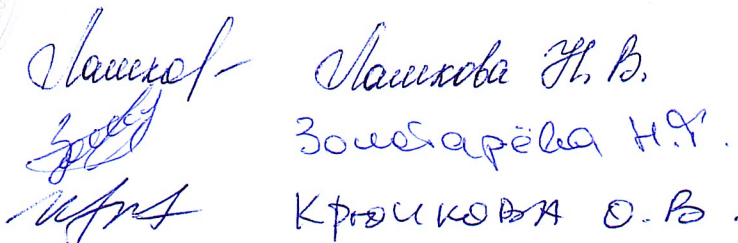 Лашков Лашкова Н. В.
Золотарёва Н.Г.
Крючкова О. В.